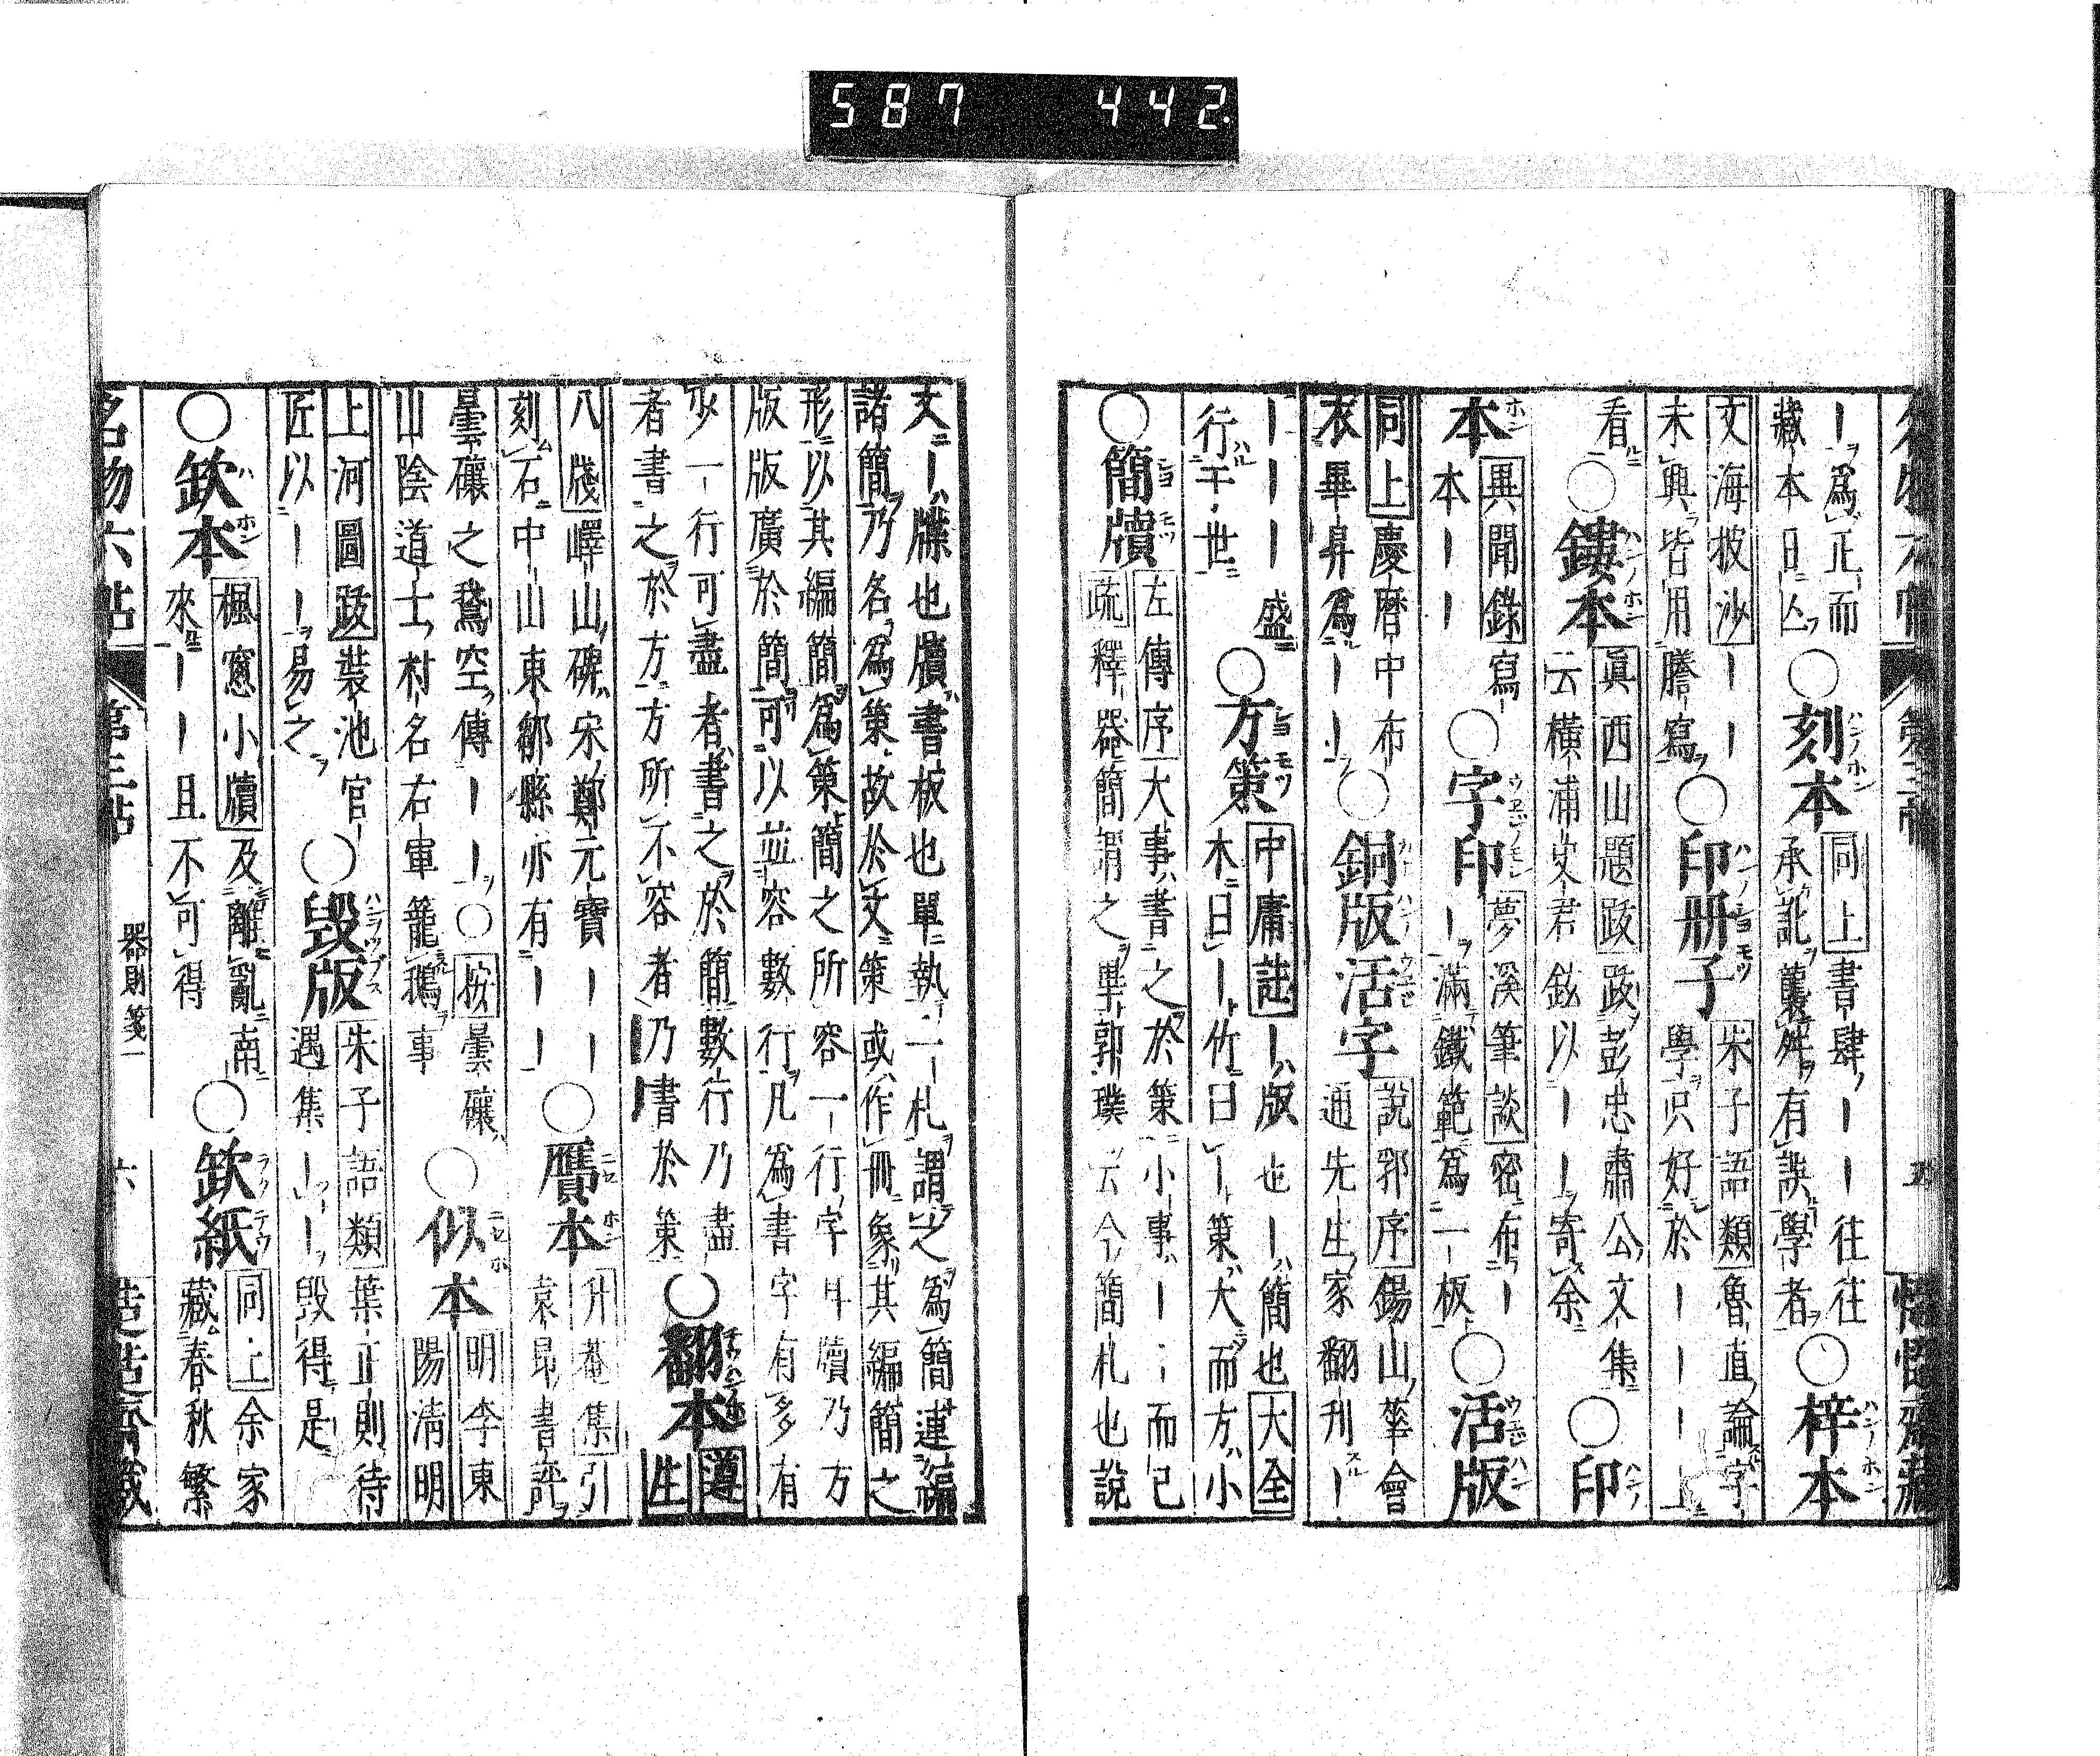 ｜爲正而
藏本曰亾
○刻本
同上書肆｜｜往往
承訛襲舛有誤學者
○梓本
文海披沙｜｜
未興皆用謄寫
○印册子
朱子語類魯直論字
學只好於｜｜｜上
看
○鏤本
眞西山題跋跋彭忠肅公文集
云橫浦史君鋟以｜｜寄余
○印
本
異聞錄寫
本｜｜
○字印
夢溪筆談密布｜
｜滿鐵範爲一板
○活版
同上慶曆中布
衣畢昇爲｜｜
○銅版活字
說郛序錫山華會
通先生家翻刋｜
｜｜｜盛
行于世
○方策
中庸註｜版也｜簡也大全
木曰｜竹曰｜策大而方小
○簡牘
左傳序大事書之於策小事｜｜而已
疏釋器簡謂之畢郭璞云今簡札也說
文｜牒也牘書板也單執一札謂之爲簡連編
諸簡乃名爲策故於文策或作冊象其編簡之
形以其編簡爲策簡之所容一行字耳牘乃方
版版廣於簡可以並容數行凡爲書字有多有
少一行可盡者書之於簡數行乃盡
者書之於方方所不容者乃書於策
○翻本
遵生
八牋嶧山碑宋鄭元寶｜｜
刻石中山東鄒縣亦有｜｜
○贋本
升菴集引
袁昂書評
曇礲之鵞空傳｜｜○按曇礲
山陰道士村名右軍籠鵝事
○似本
明李東
陽淸明
上河圖跋裝池官
匠以｜｜易之
○毀版
朱子語類葉正則待
遇集｜｜毀得是
○欽本
楓窻小牘及離亂南
來｜｜且不可得
○欽紙
同上余家
藏春秋繁
名物六帖
第三帖
器財箋一
六
慥慥齋藏
587 442.